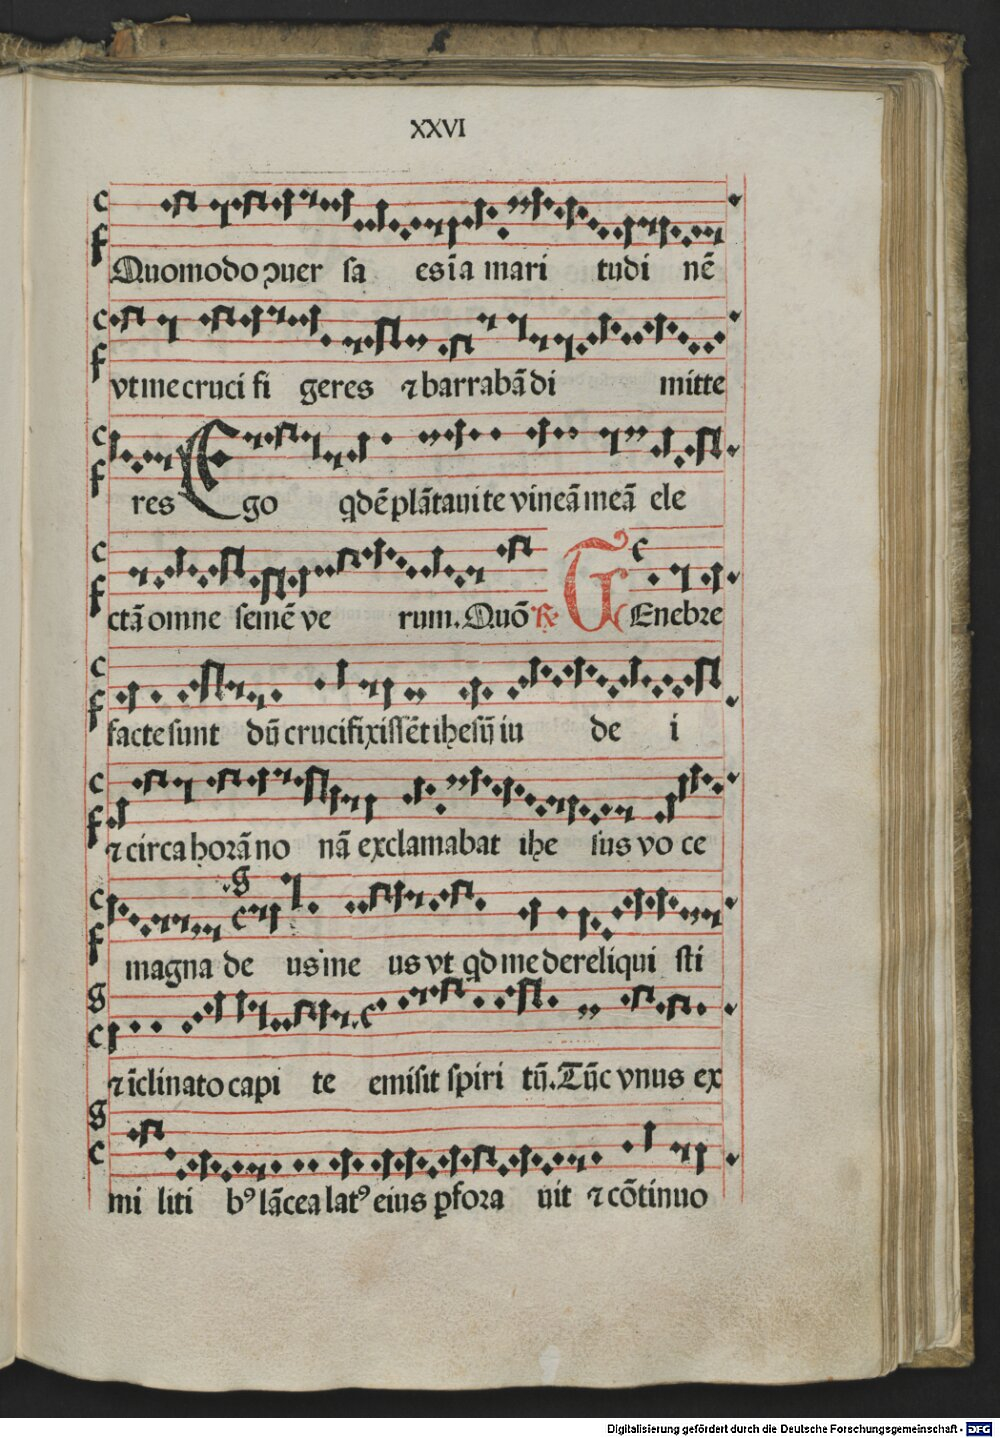 XXVI
Quomodo ꝯuer sa es ī a mari tudi nē
vt me cruci fi geres ⁊ barrabā di mitte
res Ego qdē plātaui te vineā meā ele
ctā omne semē ve rum. Quō ℟. TEnebre
facte sunt dū crucifixissēt ihesū iu de i
⁊ circa horā no nā exclamabat ihe sus vo ce
magna de us me us vt qd me dereliqui sti
⁊ īclinato capi te emisit spiri tū. Tūc vnus ex
mi liti bꝰ lācea latꝰ eius ꝑfora uit ⁊ cōtinuo
Digitalisierung gefördert durch die Deutsche Forschungsgemeinschaft - DFG